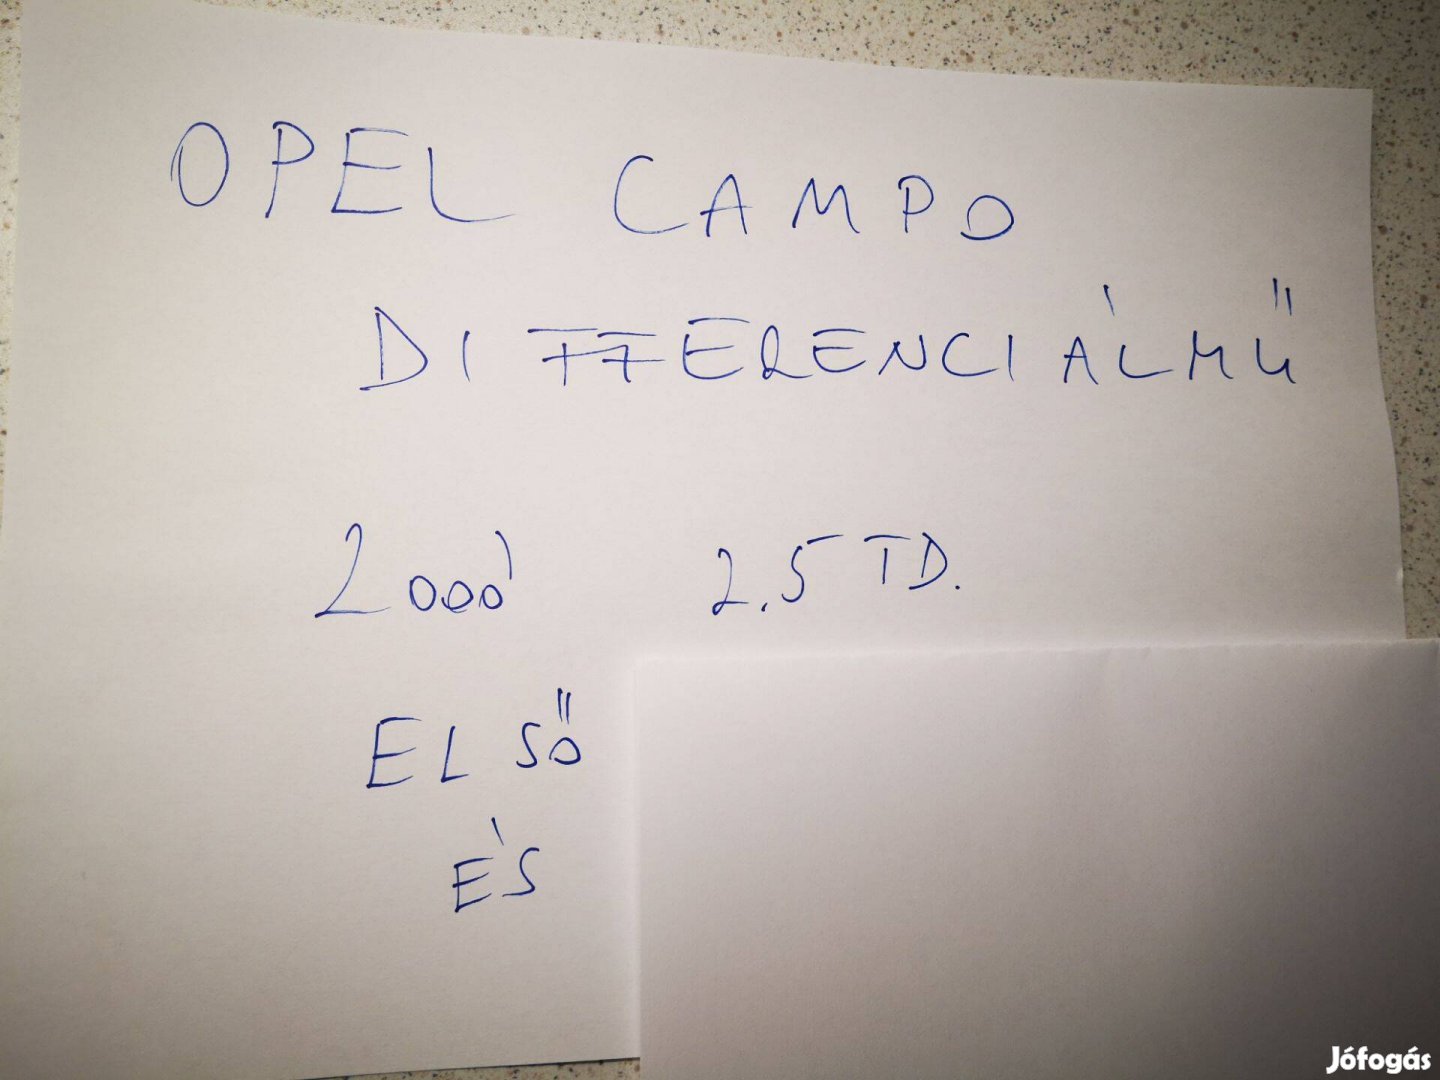 OPEL CAMPO
DIFFERENCIÁLMŰ
2000' 2.5 TD.
ELSŐ
ÉS
Jófogás